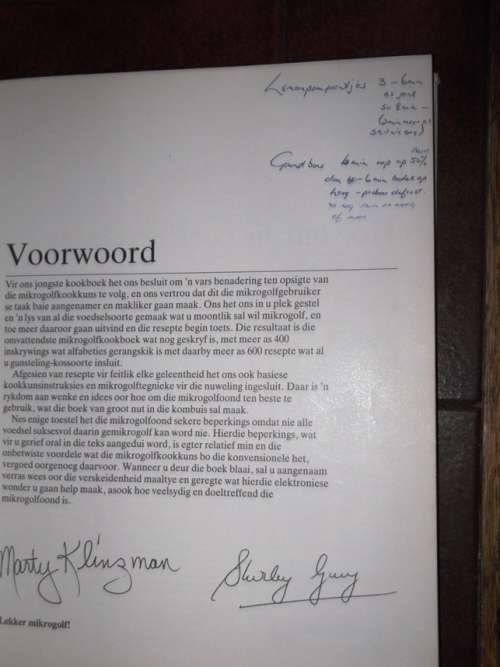 3 - 6 min
6 min op op 50%
Voorwoord
Vir ons jongste kookboek het ons besluit om 'n vars benadering ten opsigte van
die mikrogolfkookkuns te volg, en ons vertrou dat dit die mikrogolfgebruiker
se taak baie aangenamer en makliker gaan maak. Ons het ons in u plek gestel
en 'n lys van al die voedselsoorte gemaak wat u moontlik sal wil mikrogolf, en
toe meer daaroor gaan uitvind en die resepte begin toets. Die resultaat is die
omvattendste mikrogolfkookboek wat nog geskryf is, met meer as 400
inskrywings wat alfabeties gerangskik is met daarby meer as 600 resepte wat al
u gunsteling-kossoorte insluit.
Afgesien van resepte vir feitlik elke geleentheid het ons ook basiese
kookkunsinstruksies en mikrogolftegnieke vir die nuweling ingesluit. Daar is 'n
rykdom aan wenke en idees oor hoe om die mikrogolfoond ten beste te
gebruik, wat die boek van groot nut in die kombuis sal maak.
Nes enige toestel het die mikrogolfoond sekere beperkings omdat nie alle
voedsel suksesvol daarin gemikrogolf kan word nie. Hierdie beperkings, wat
vir u gerief oral in die teks aangedui word, is egter relatief min en die
onbetwiste voordele wat die mikrogolfkookkuns bo die konvensionele het,
vergoed oorgenoeg daarvoor. Wanneer u deur die boek blaai, sal u aangenaam
verras wees oor die verskeidenheid maaltye en geregte wat hierdie elektroniese
wonder u gaan help maak, asook hoe veelsydig en doeltreffend die
mikrogolfoond is.
Marty Klinzman
Shirley Guy
Lekker mikrogolf!